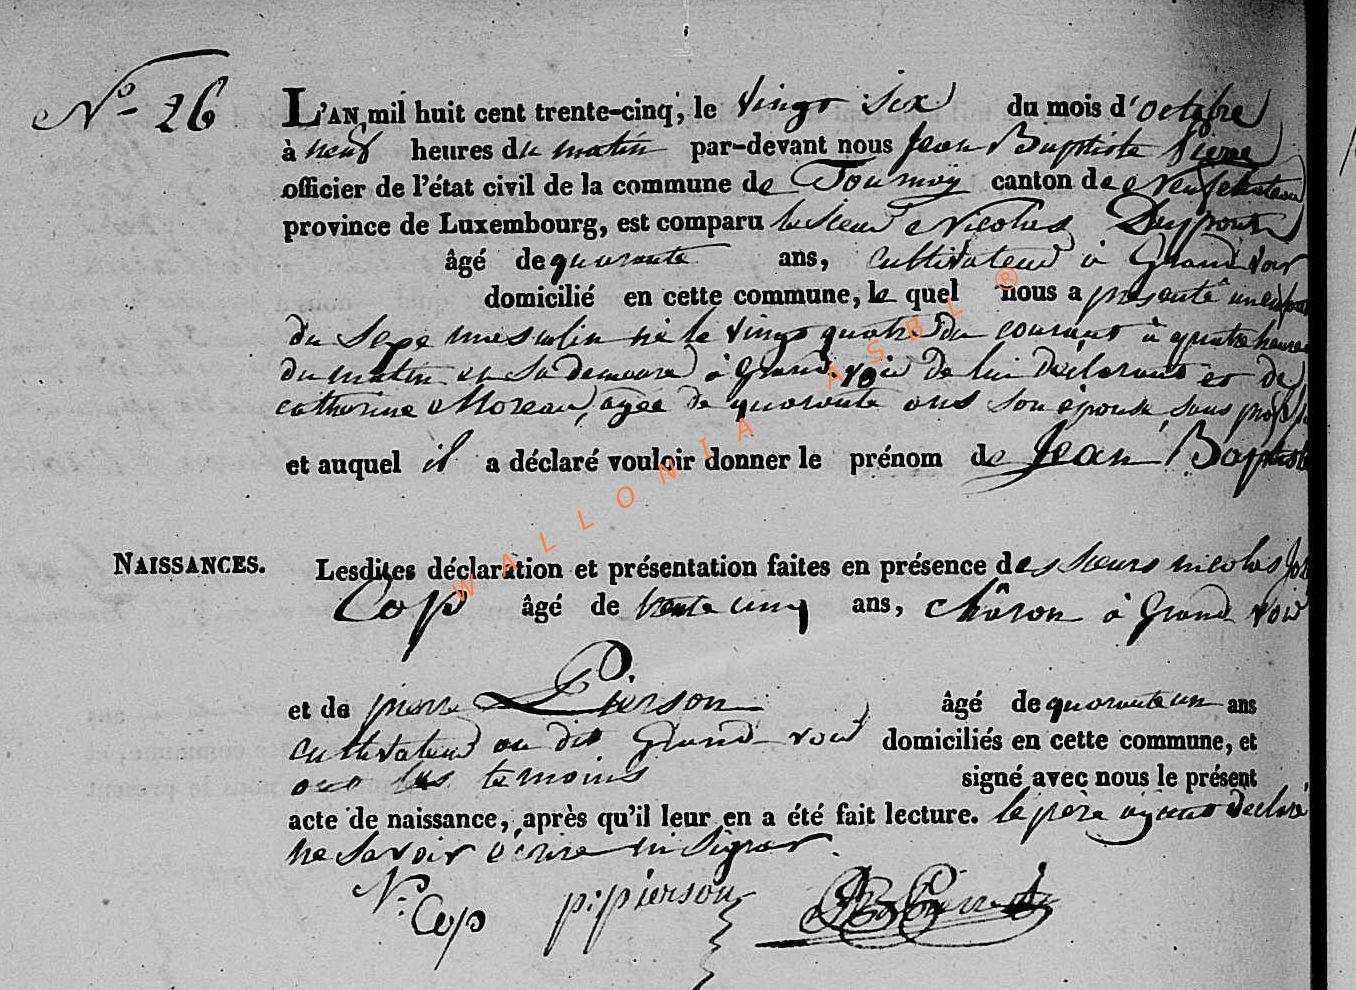 N.º 26
L'AN mil huit cent trente-cinq, le vingt six du mois d'octobre
à neuf heures du matin par-devant nous Jean Baptiste
officier de l'état civil de la commune de Tournay canton de Neufchateau
province de Luxembourg, est comparu le sieur Nicolas
âgé de quarante ans, cultivateur à Grand voir
domicilié en cette commune, le quel nous a presenté un enfant
du sexe masculin né le vingt quatre du courant à quatre heures
du matin en sa demeure à Grand voir de lui déclarant et de
catherine Moreau, agée de quarante ans son épouse, sans
et auquel il a déclaré vouloir donner le prénom de Jean Baptiste
NAISSANCES. Lesdites déclaration et présentation faites en présence des sieurs nicolas
Cop âgé de trente cinq ans, châron à Grand voir
et de pierre Pierson âgé de quarante un ans
cultivateur au dit Grand voir domiciliés en cette commune, et
ont les temoins signé avec nous le présent
acte de naissance, après qu'il leur en a été fait lecture. le père ayant declaré
ne savoir écrire ni signer.
N: Cop p: pierson
WALLONIA ASBL ®